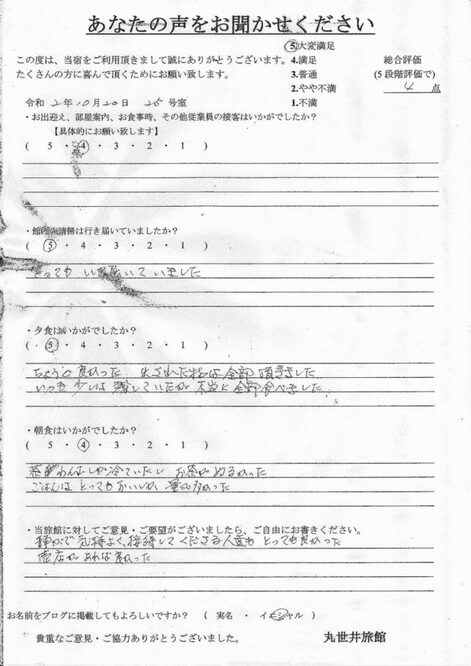 あなたの声をお聞かせください
この度は、当宿をご利用頂きまして誠にありがとうございます。
たくさんの方に喜んで頂くためにお願い致します。
5.大変満足
4.満足
3.普通
2.やや不満
1.不満
総合評価
(5段階評価で)
4 点
令和 2年10月20日 25号室
・お出迎え、部屋案内、お食事時、その他従業員の接客はいかがでしたか?
【具体的にお願い致します】
( 5 ・ 4 ・ 3 ・ 2 ・ 1 )
・館内の清掃は行き届いていましたか?
( 5 ・ 4 ・ 3 ・ 2 ・ 1 )
とってもいき届いていました
・夕食はいかがでしたか?
( 5 ・ 4 ・ 3 ・ 2 ・ 1 )
ちょうど良かった 出された物は全部頂きました
いつも少しは残していたが 全部食べました
・朝食はいかがでしたか?
( 5 ・ 4 ・ 3 ・ 2 ・ 1 )
冷えていたし お茶がぬるかった
ごはんはとってもおいしい 量が多かった
・当旅館に対してご意見・ご要望がございましたら、ご自由にお書きください。
静かで気持よく、接待してくださる人達も とっても良かった
売店があれば良かった
お名前をブログに掲載してもよろしいですか? ( 実名 ・ イニシャル )
貴重なご意見・ご協力ありがとうございました。
丸世井旅館